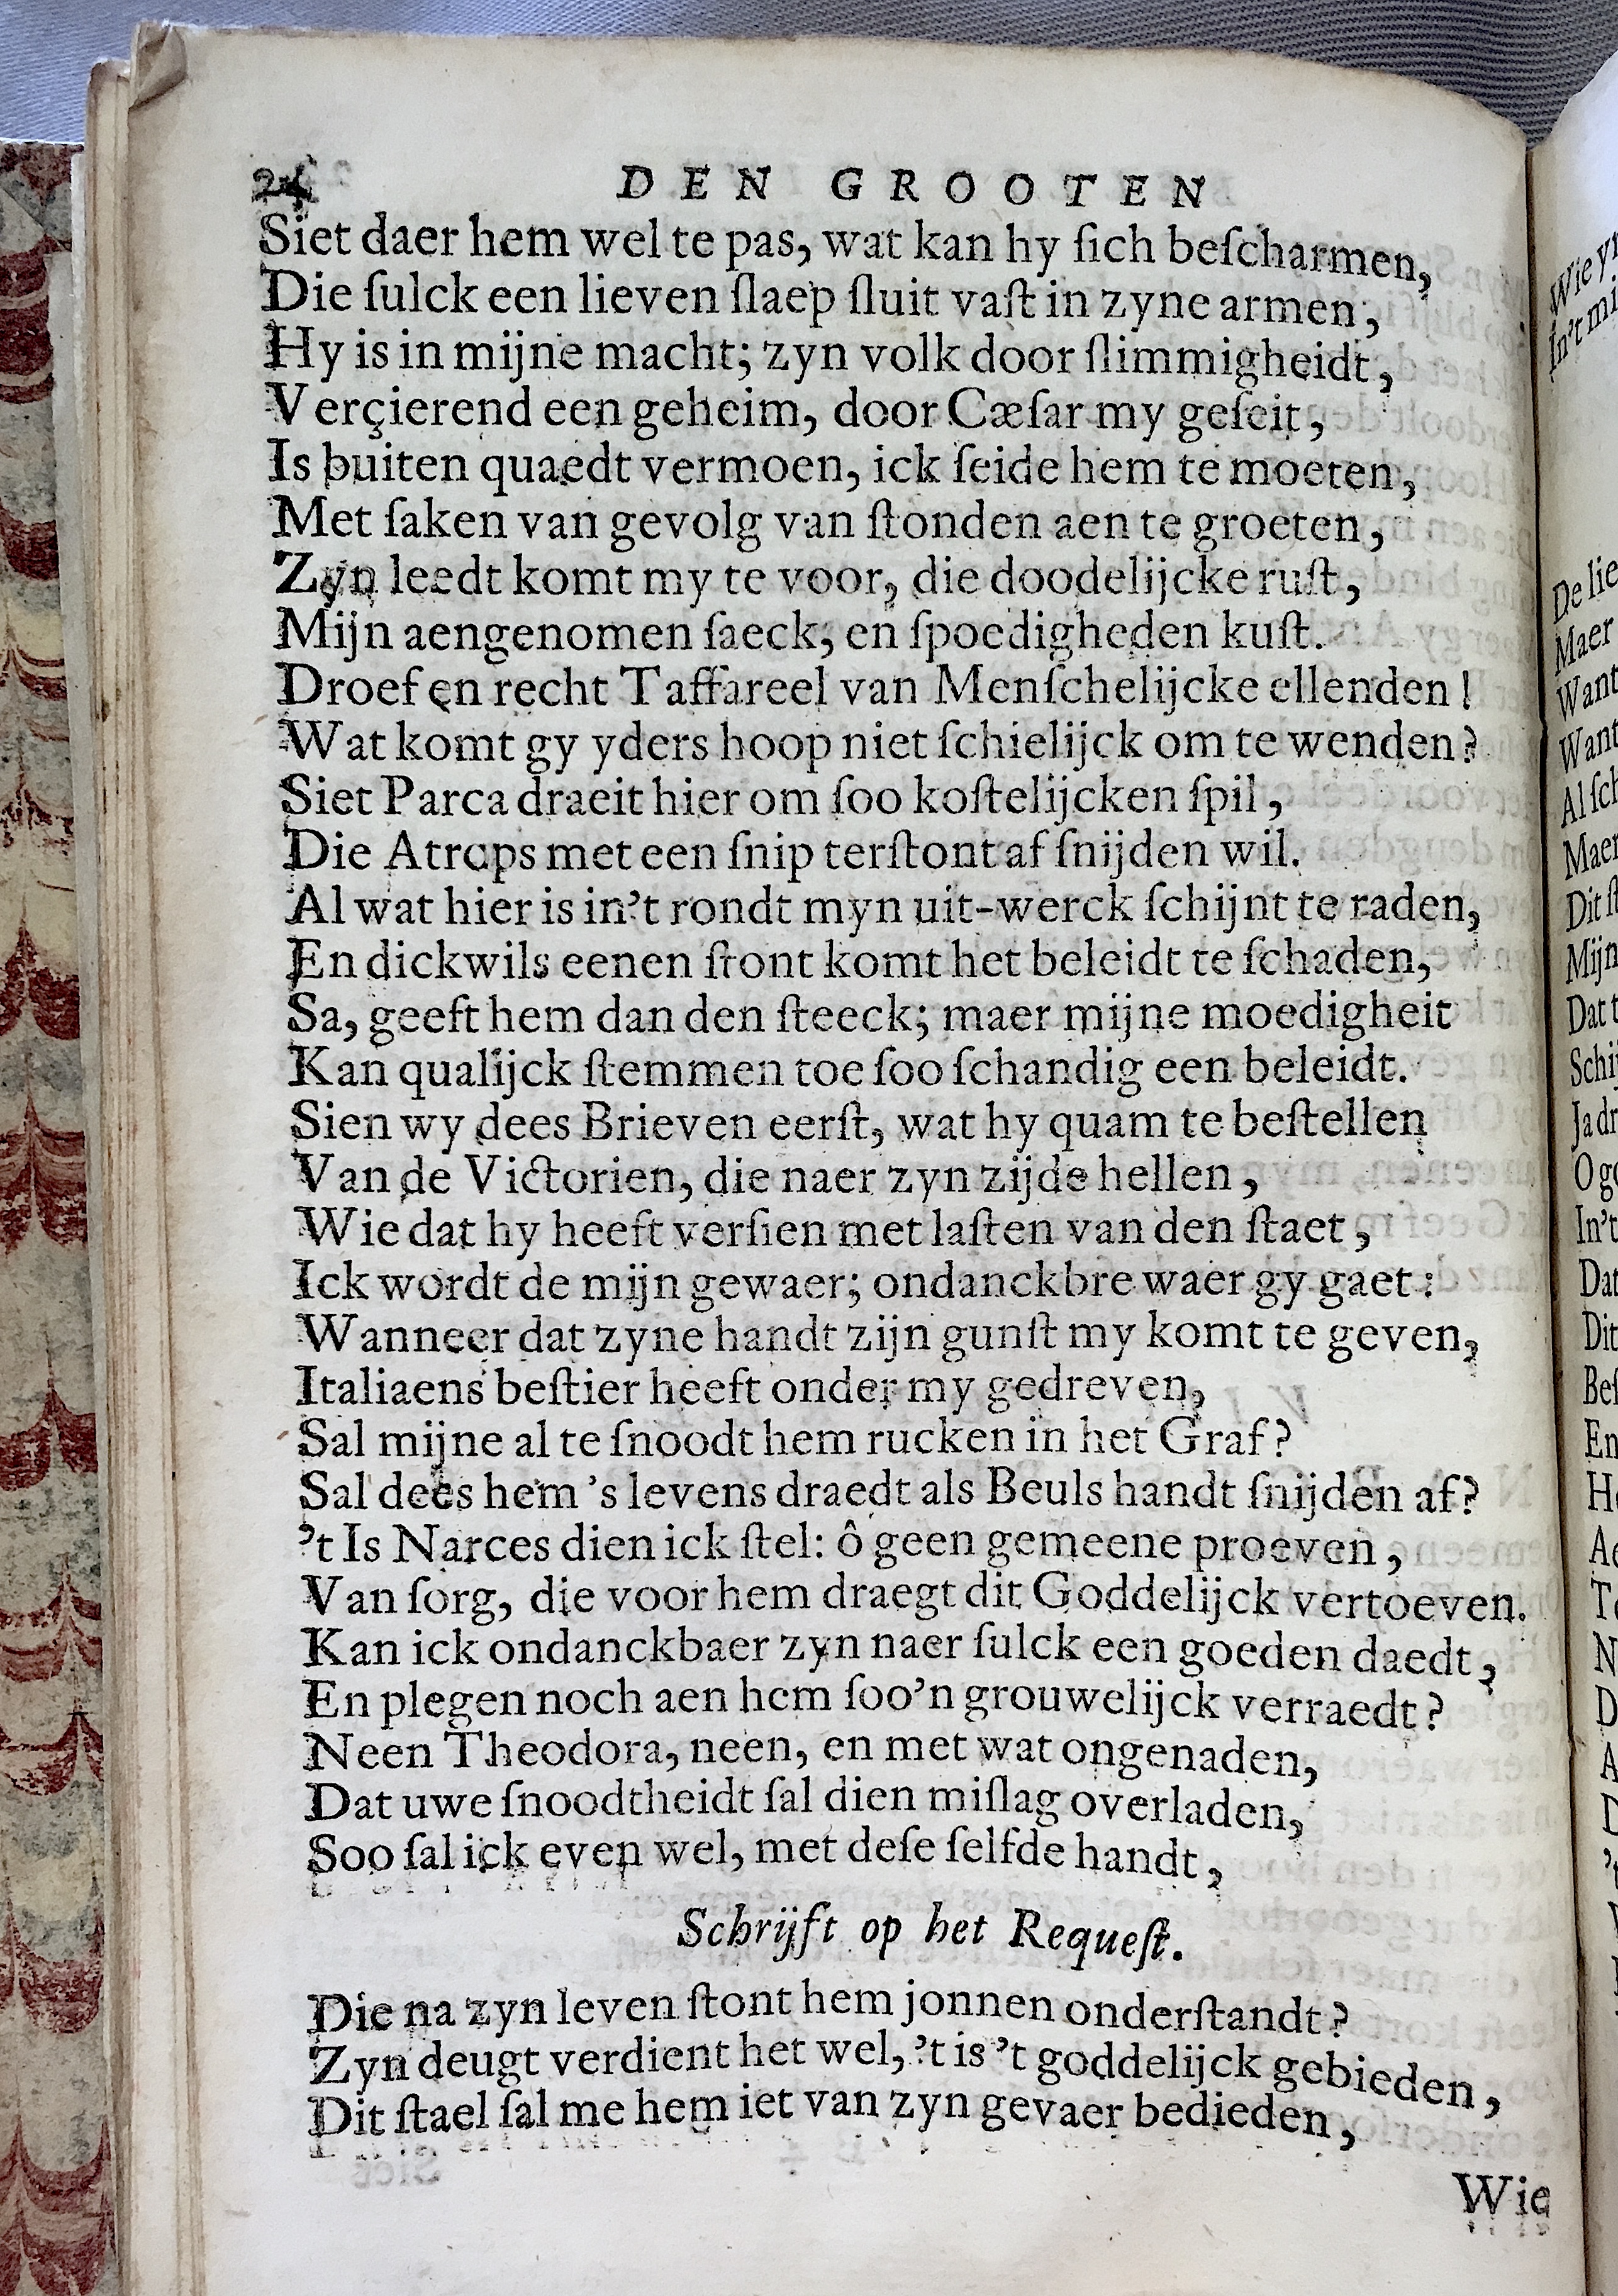 24 DEN GROOTEN
Siet daer hem wel te pas, wat kan hy ſich beſcharmen,
Die ſulck een lieven ſlaep ſluit vaſt in zyne armen,
Hy is in mijne macht; zyn volk door ſlimmigheidt,
Verçierend een geheim, door Cæſar my geſeit,
Is buiten quaedt vermoen, ick ſeide hem te moeten,
Met ſaken van gevolg van ſtonden aen te groeten,
Zyn leedt komt my te voor, die doodelijcke ruſt,
Mijn aengenomen ſaeck, en ſpoedigheden kuſt.
Droef en recht Taffareel van Menſchelijcke ellenden!
Wat komt gy yders hoop niet ſchielijck om te wenden?
Siet Parca draeit hier om ſoo koſtelijcken ſpil,
Die Atrops met een ſnip terſtont af ſnijden wil.
Al wat hier is in't rondt myn uit-werck ſchijnt te raden,
En dickwils eenen ſtont komt het beleidt te ſchaden,
Sa, geeft hem dan den ſteeck; maer mijne moedigheit
Kan qualijck ſtemmen toe ſoo ſchandig een beleidt.
Sien wy dees Brieven eerſt, wat hy quam te beſtellen
Van de Victorien, die naer zyn zijde hellen,
Wie dat hy heeft verſien met laſten van den ſtaet,
Ick wordt de mijn gewaer; ondanckbre waer gy gaet:
Wanneer dat zyne handt zijn gunſt my komt te geven,
Italiaens beſtier heeft onder my gedreven,
Sal mijne al te ſnoodt hem rucken in het Graf?
Sal dees hem 's levens draedt als Beuls handt ſnijden af?
't Is Narces dien ick ſtel: ô geen gemeene proeven,
Van ſorg, die voor hem draegt dit Goddelijck vertoeven.
Kan ick ondanckbaer zyn naer ſulck een goeden daedt,
En plegen noch aen hem ſoo'n grouwelijck verraedt?
Neen Theodora, neen, en met wat ongenaden,
Dat uwe ſnoodtheidt ſal dien miſlag overladen,
Soo ſal ick even wel, met deſe ſelfde handt,
Schrijft op het Requeſt.
Die na zyn leven ſtont hem jonnen onderſtandt?
Zyn deugt verdient het wel, 't is 't goddelijck gebieden,
Dit ſtael ſal me hem iet van zyn gevaer bedieden,
Wie